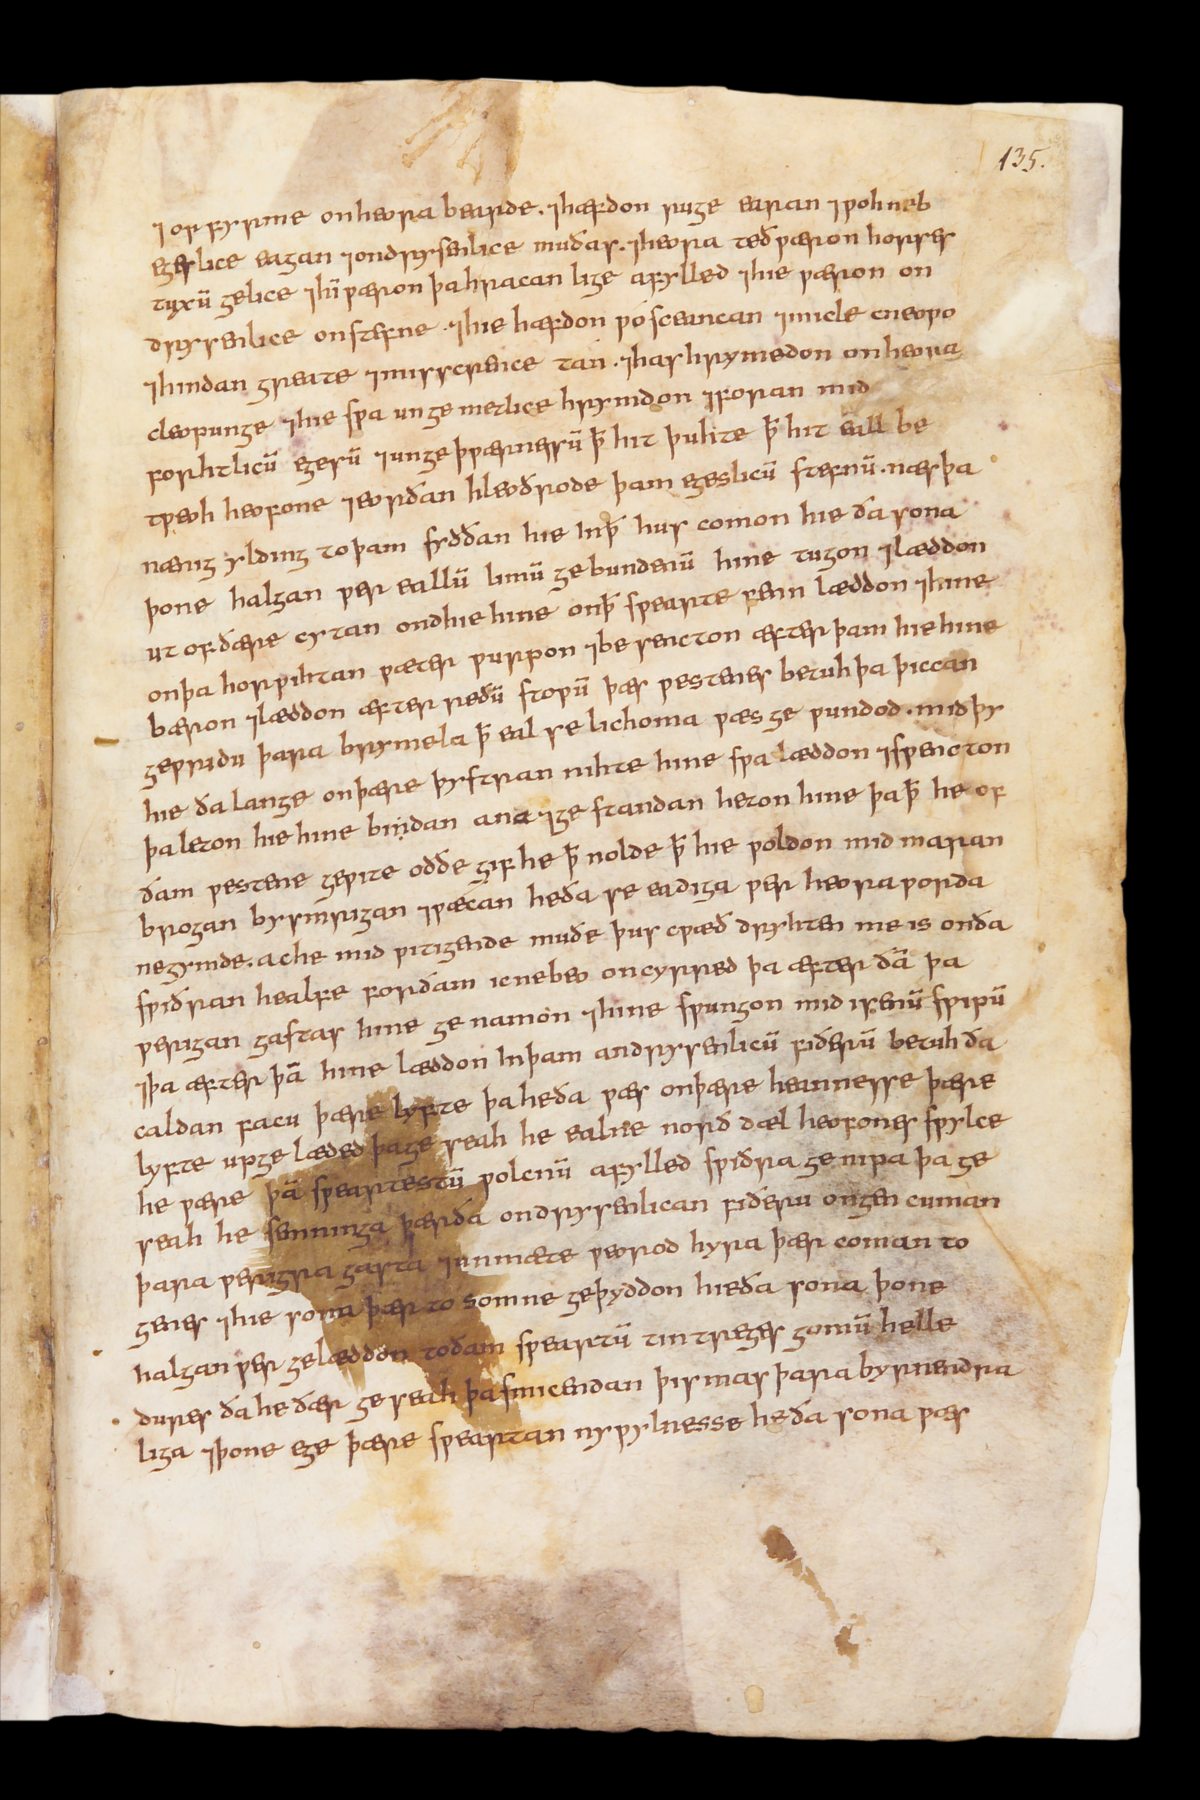 135.
⁊ of fyrine on heora bearde. ⁊ hæfdon ruge earan ⁊ woh neb
egeslice eagan ⁊ ondrysenlice muðas. ⁊ heora teð wæron horses
tuxū gelice ⁊ hī wæron þa hracan lige afylled ⁊ hie wæron on
drysenlice on stefne. ⁊ hie hæfdon wo sceancan ⁊ micle cneowo
⁊ hindan greate ⁊ misscrence tan. ⁊ hashrymedon on heora
cleopunge ⁊ hie swa ungemetlice hrymdon ⁊ foran mid
forhtlicū egesū ⁊ ungeþwærnessū þ̄ hit þuhte þ̄ hit eall be
tweoh heofone ⁊ eorðan hleoðrode þam egeslicū stefnū. næs þa
nænig ylding to þam syððan hie in þ̄ hus comon hie ða sona
þone halgan wer eallū limū gebundenū hine tugon ⁊ læddon
ut of ðære cytan ond hie hine on þ̄ swearte fenn læddon ⁊ hine
on þa horwihtan wæter wurpon ⁊ besencton æfter þam hie hine
bæron ⁊ læddon æfter reðū stowū þæs westenes betuh þa þiccan
gewrido þara brymela þ̄ eal se lichoma wæs gewundod. mid þy
hie ða lange on þære þystran nihte hine swa læddon ⁊ swencton
þa leton hie hine bindan ana ⁊ gestandan heton hine þa þ̄ he of
ðam westene gewite oððe gif he þ̄ nolde þ̄ hie woldon mid maran
brogan bysmrigan ⁊ wæcan he ða se eadiga wer heora worda
ne gymde. ac he mid witigende muðe þus cwæð dryhten me is on ða
swiðran healfe forðam ic ne beo oncyrred þa æfter ðā þa
werigan gastas hine genamon ⁊ hine swungon mid irenū swipū
⁊ þa æfter þā hine læddon in þam andrysenlicū fiðerū betuh ða
caldan facu þære lyfte þa he ða wæs on þære heannesse þære
lyfte up gelæded þa geseah he ealne norð dæl heofones swylce
he wære þā sweartestū wolcnū afylled swiðra genipa þa ge
seah he semninga þær ða ondrysenlican fiðeru ongen cuman
þara werigra gasta ⁊ unmæte weorod hyra þær coman to
genes ⁊ hie sona þær to somne geþyddon hie ða sona þone
halgan wer gelæddon to ðam sweartū tintreges gomū helle
dures ða he ðær geseah þa smicendan þismas þara byrnendra
liga ⁊ þone ege þære sweartan nywylnesse he ða sona wæs